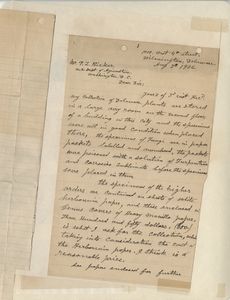 Wilmington, Delaware
Aug. 7th 1902
Mr. P. L. Ricker
U.S. Dept. of Agriculture
Washington, D.C.
Dear Sir:
Yours of 5th inst. Rec'd.
My collection of Delaware plants are stored
in a large dry room on the second floor
of a building in this city and the specimens
were all in good condition when placed
there, the specimens of Fungi are in paper
packets labelled and numbered. The packets
were poisoned with a solution of Turpentine
and Corrosive Sublimate before the specimens
were placed in them.
The specimens of the higher
orders are contained in sheets of white
herbarium paper, and these enclosed in
Genus Covers of heavy manilla paper.
Three Hundred and fifty dollars, (350)
is what I ask for the collection, when
taking into consideration the cost of
the Herbarium paper, I think is a
reasonable price.
See papers enclosed for further